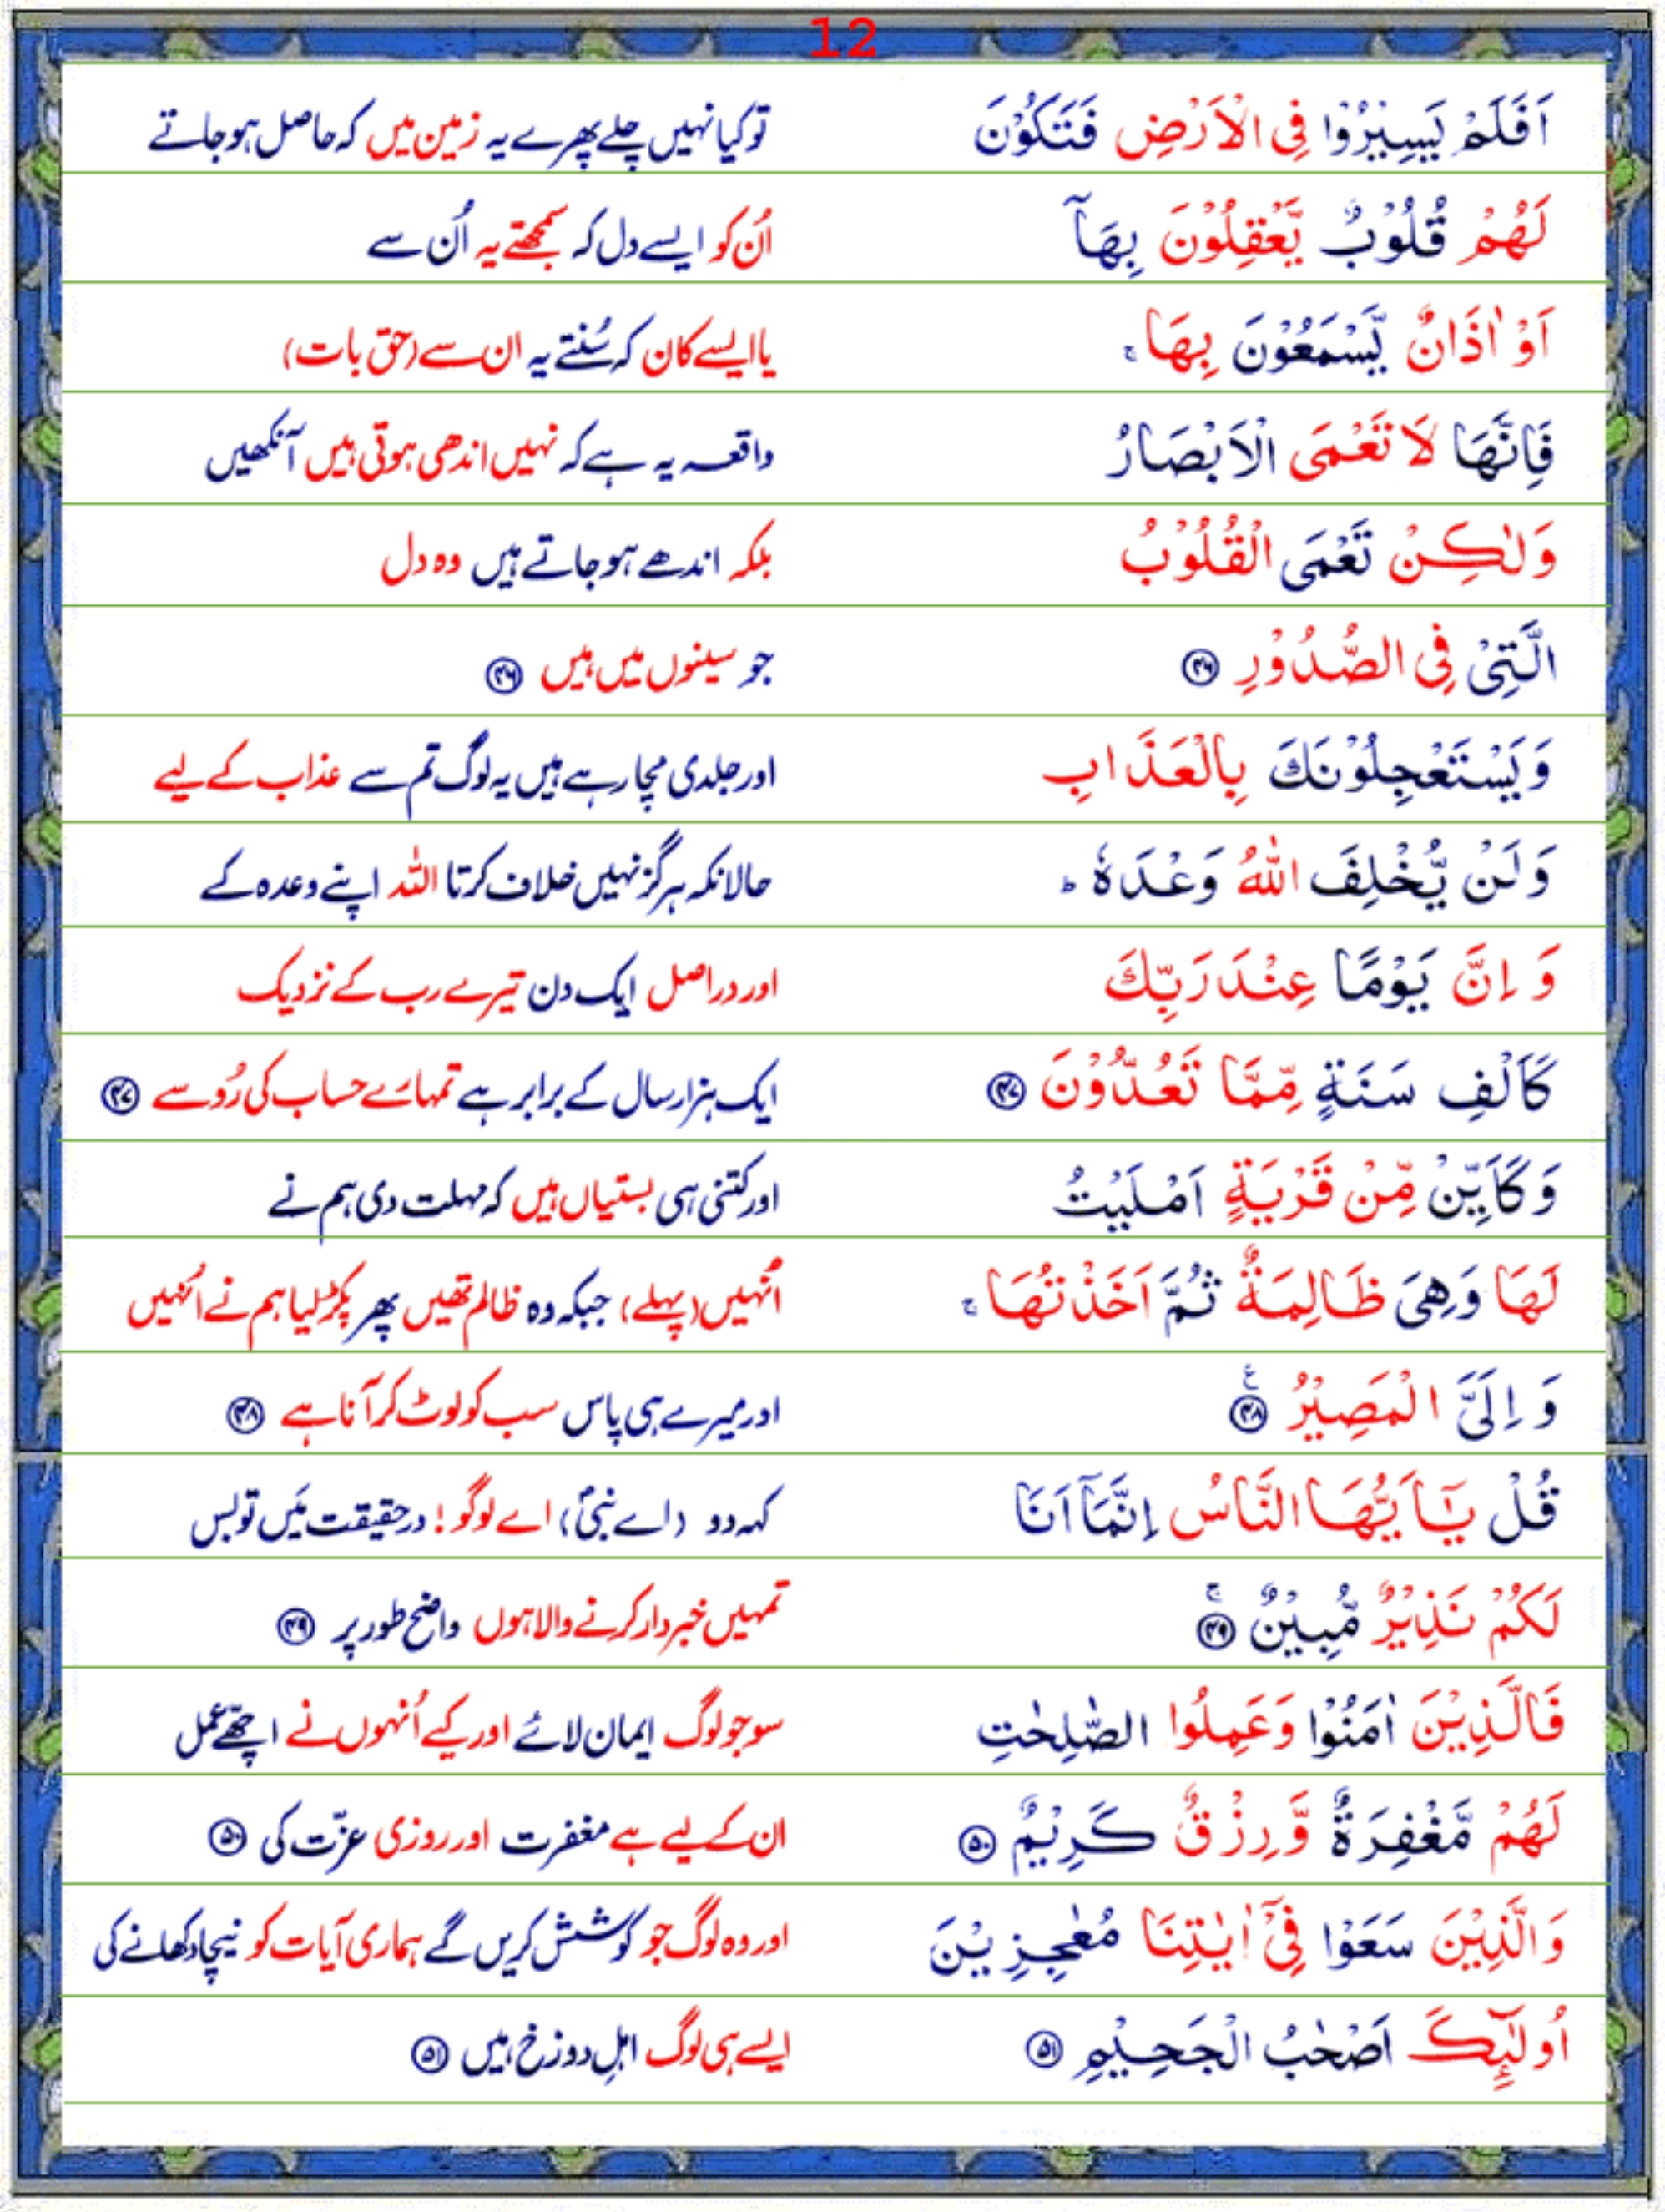 12
اَفَلَمْ يَسِيْرُوْا فِى الْاَرْضِ فَتَكُوْنَ توکیانہیں چلے پھرے یہ زمین میں کہ حاصل ہوجاتے
لَهُمْ قُلُوْبٌ يَّعْقِلُوْنَ بِهَاۤ اُن کو ایسے دل کہ سمجھتے یہ اُن سے
اَوْ اٰذَانٌ يَّسْمَعُوْنَ بِهَا ۚ یا ایسے کان کہ سُنتے یہ ان سے (حق بات)
فَاِنَّهَا لَا تَعْمَى الْاَبْصَارُ واقعہ یہ ہے کہ نہیں اندھی ہوتی ہیں آنکھیں
وَلٰكِنْ تَعْمَى الْقُلُوْبُ بلکہ اندھے ہوجاتے ہیں وہ دل
الَّتِىْ فِى الصُّدُوْرِ ﴿۴۶﴾ جو سینوں میں ہیں ﴿۴۶﴾
وَيَسْتَعْجِلُوْنَكَ بِالْعَذَابِ اور جلدی مچارہے ہیں یہ لوگ تم سے عذاب کے لیے
وَلَنْ يُّخْلِفَ اللّٰهُ وَعْدَهٗ ؕ حالانکہ ہرگز نہیں خلاف کرتا اللّٰہ اپنے وعدہ کے
وَ اِنَّ يَوْمًا عِنْدَ رَبِّكَ اور دراصل ایک دن تیرے رب کے نزدیک
كَاَلْفِ سَنَةٍ مِّمَّا تَعُدُّوْنَ ﴿۴۷﴾ ایک ہزار سال کے برابر ہے تمہارے حساب کی رُو سے ﴿۴۷﴾
وَكَاَيِّنْ مِّنْ قَرْيَةٍ اَمْلَيْتُ اور کتنی ہی بستیاں ہیں کہ مہلت دی ہم نے
لَهَا وَهِىَ ظَالِمَةٌ ثُمَّ اَخَذْتُهَا ۚ اُنہیں (پہلے) جبکہ وہ ظالم تھیں پھر پکڑلیا ہم نے اُنہیں
وَ اِلَىَّ الْمَصِيْرُ ﴿۴۸﴾ۧ اور میرے ہی پاس سب کو لوٹ کر آنا ہے ﴿۴۸﴾
قُلْ يٰۤاَيُّهَا النَّاسُ اِنَّمَاۤ اَنَا کہہ دو (اے نبیؐ) اے لوگو! درحقیقت مَیں تو بس
لَكُمْ نَذِيْرٌ مُّبِيْنٌ ﴿۴۹﴾ۚ تمہیں خبردار کرنے والا ہوں واضح طور پر ﴿۴۹﴾
فَالَّذِيْنَ اٰمَنُوْا وَعَمِلُوا الصّٰلِحٰتِ سو جو لوگ ایمان لائے اور کیے اُنہوں نے اچھے عمل
لَهُمْ مَّغْفِرَةٌ وَّرِزْقٌ كَرِيْمٌ ﴿۵۰﴾ ان کے لیے ہے مغفرت اور روزی عزّت کی ﴿۵۰﴾
وَالَّذِيْنَ سَعَوْا فِىْۤ اٰيٰتِنَا مُعٰجِزِيْنَ اور وہ لوگ جو کوشش کریں گے ہماری آیات کو نیچا دکھانے کی
اُولٰٓٮِٕكَ اَصْحٰبُ الْجَحِيْمِ ﴿۵۱﴾ ایسے ہی لوگ اہلِ دوزخ ہیں ﴿۵۱﴾